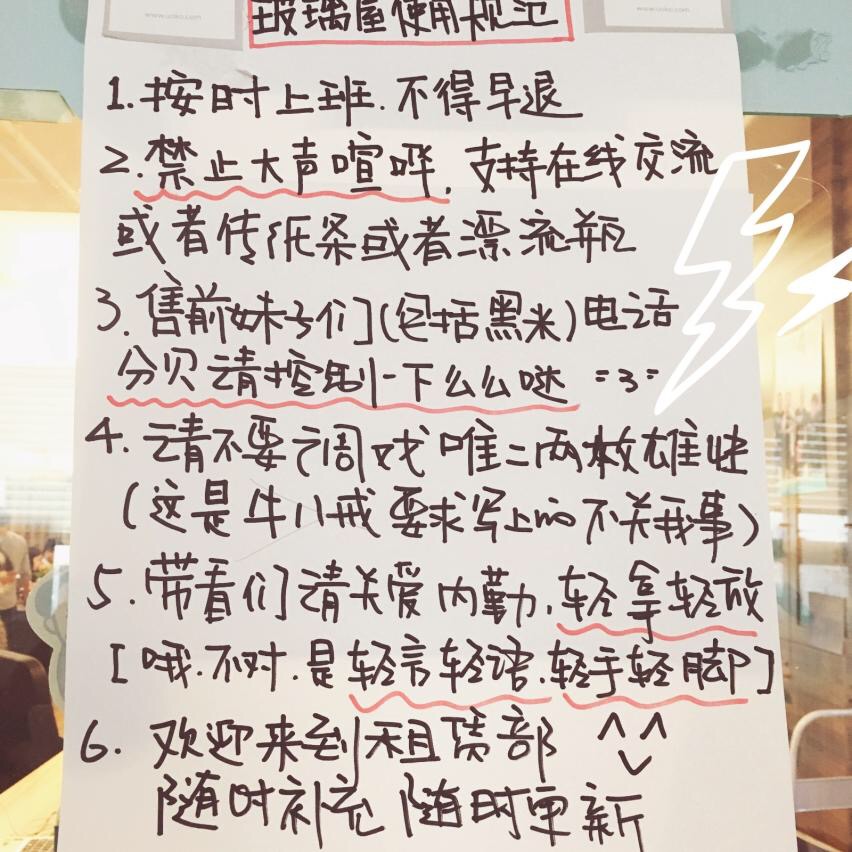 www.uoko.com
www.uoko.com
玻璃屋使用规范
1.按时上班.不得早退
2.禁止大声喧哗,支持在线交流
或者传纸条或者漂流瓶
3.售前妹子们(包括黑米)电话
分贝请控制一下么么哒 =3=
4.请不要调戏唯二两枚雄性
(这是牛八戒要求写上的不关我事)
5.带看们请关爱内勤,轻拿轻放
[哦.不对.是轻言轻语.轻手轻脚]
6.欢迎来到租赁部 ^ ^
随时补充 随时更新